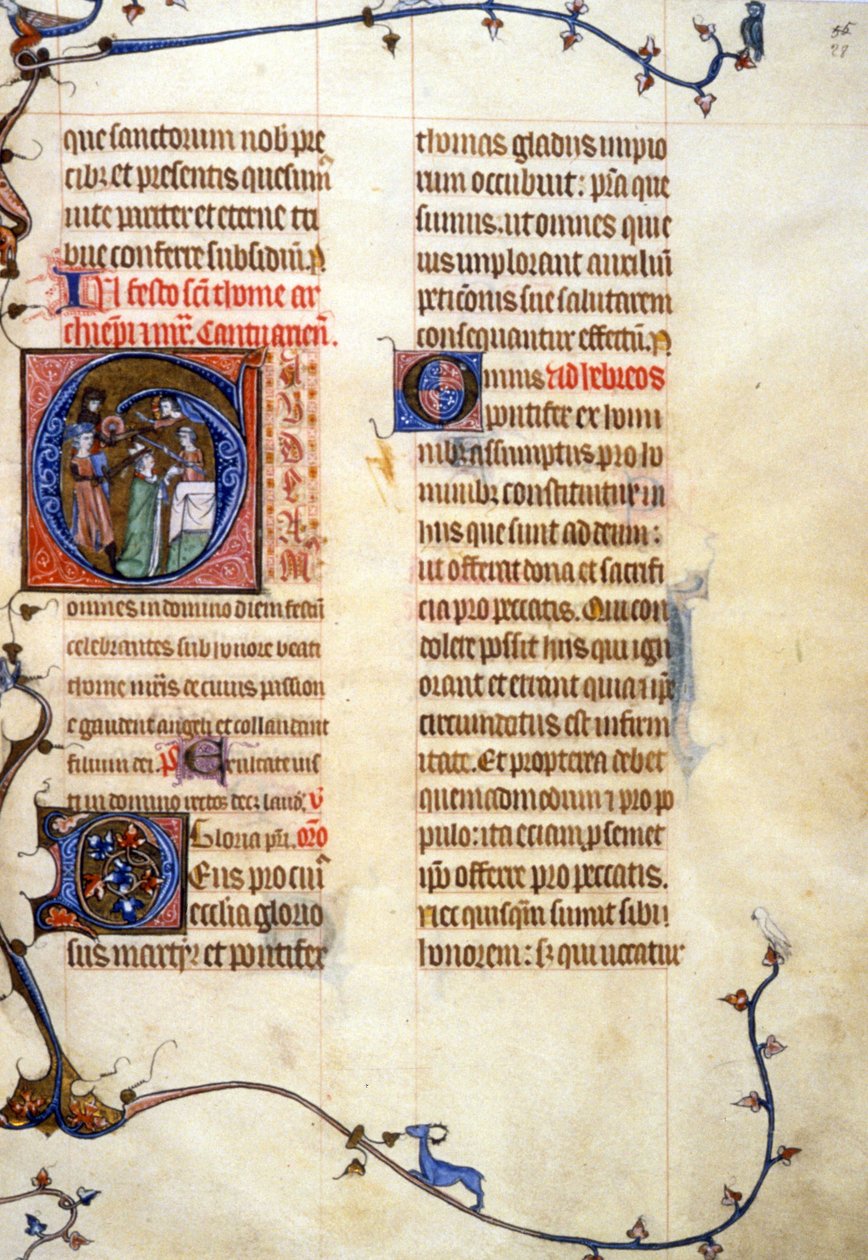 55
28
que sanctorum nob̃ pre
cibꝫ et presentis quesum̃
uite pariter et eterne tri
bue conferre subsidiũ. p̱
In festo sc̃i thome ar
chiep̃i ⁊ mr̃. Cantuarien̄.
GAUDEAM
omnes in domino diem festũ
celebrantes sub honore beati
thome mr̃is de cuius passion
e gaudent angeli et collaudant
filium dei. P̃s Exultate ius
ti in domino rectos dec⁊ laud̃. V̄
Gloria pr̃i. or̃o
Deus pro cui᷒
ecclesia glorio
sus martyr et pontifex
thomas gladiis impio
rum occubuit: pr̃a que
sumus. ut omnes qui e
ius implorant auxiliũ
peticõnis sue salutarem
consequantur effectũ. p̱
Omnis Ad hebreos
pontifex ex homi
nibꝫ assumptus pro ho
minibꝫ constituitur in
hiis que sunt ad deum:
ut offerat dona et sacrifi
cia pro peccatis. Qui con
dolere possit hiis qui ign
orant et errant quia ⁊ ip̃e
circumdatus est infirm
itate. Et propterea debet
quemadmodum ⁊ pro po
pulo: ita eciam ꝓ semet
ip̃o offerre pro peccatis.
Nec quisq̃m sumit sibi
honorem: sꝫ qui uocatur